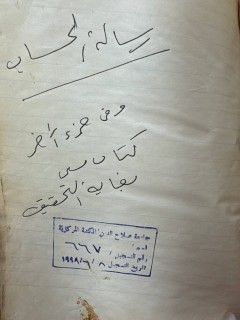 رسالة الحساب
وفى جزء آخر
كتاب مسى
بغاية التحقيق
جامعة صلاح الدين المكتبة المركزية
٦٦٧
رقم التسجيل /
تاريخ التسجيل ٨ / ٦ / ١٩٩٨